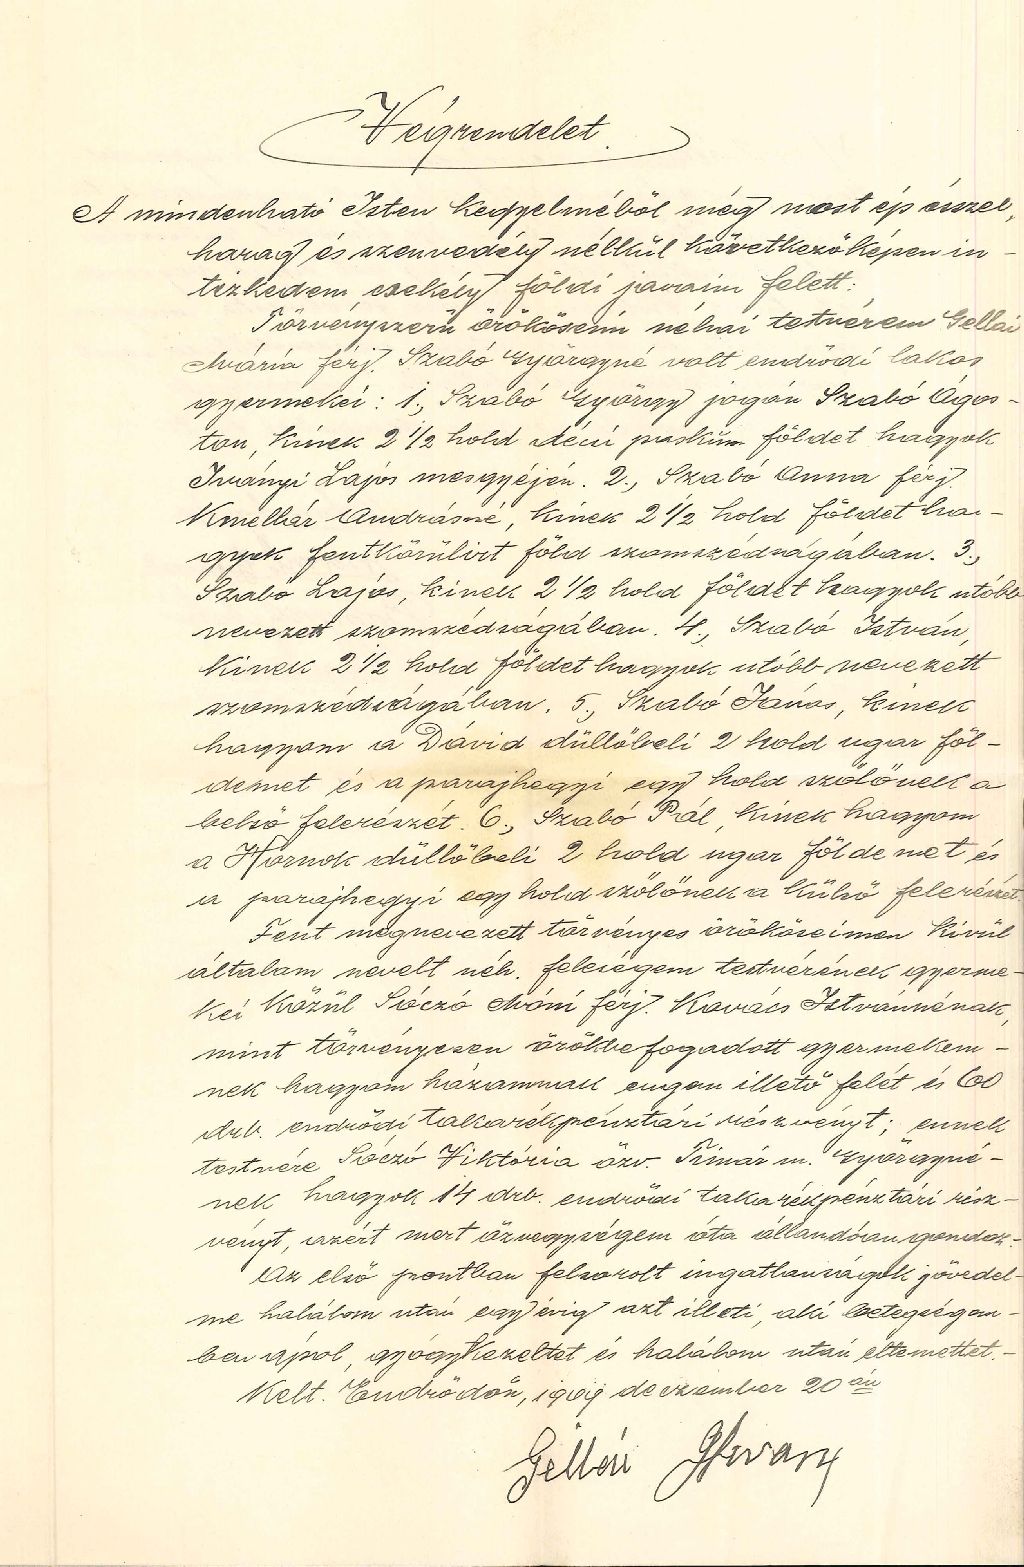 Végrendelet.
A mindenható Isten kegyelméből még most ép ésszel,
harag és szenvedély nélkül következőképen in-
tézkedem csekély földi javaim felett:
Törvényszerű örököseim néhai testvérem Gellai
Mária férj. Szabó Györgyné volt endrődi lakos
gyermekei: 1., Szabó György jogán Szabó Ágos-
ton, kinek 2 1/2 hold décsi puskum földet hagyok
Iványi Lajos mesgyéjén. 2., Szabó Anna férj.
Kmellár Andrásné, kinek 2 1/2 hold földet ha-
gyok fentkörülirt föld szomszédságában. 3.,
Szabó Lajos, kinek 2 1/2 hold földet hagyok utóbb
nevezett szomszédságában. 4., Szabó István,
kinek 2 1/2 hold földet hagyok utóbb nevezett
szomszédságában. 5., Szabó János, kinek
hagyom a Dávid düllőbeli 2 hold ugar föl-
demet és a parajhegyi egy hold szőlőnek a
belső felerészét. 6., Szabó Pál, kinek hagyom
a Hornok düllőbeli 2 hold ugar földemet és
a parajhegyi egy hold szőlőnek a külső felerészét.
Fent megnevezett törvényes örököseimen kívül
általam nevelt néh. feleségem testvérének gyerme-
kei közül Sóczó Máni férj. Kovács Istvánnénak,
mint törvényesen örökbefogadott gyermekem-
nek hagyom házamnak engem illető felét és 60
drb. endrődi takarékpénztári részvényt; ennek
testvére Sóczó Viktória özv. Timár m. Györgyné-
nek hagyok 14 drb. endrődi takarékpénztári rész-
vényt, azért mert özvegységem óta állandóan gondoz.-
Az első pontban felsorolt ingatlanságok jövedel-
me halálom után egy évig azt illeti, aki betegségem-
ben ápol, gyógykezeltet és halálom után eltemettet.-
Kelt. Endrődön, 1909 deczember 20 án
Gellai